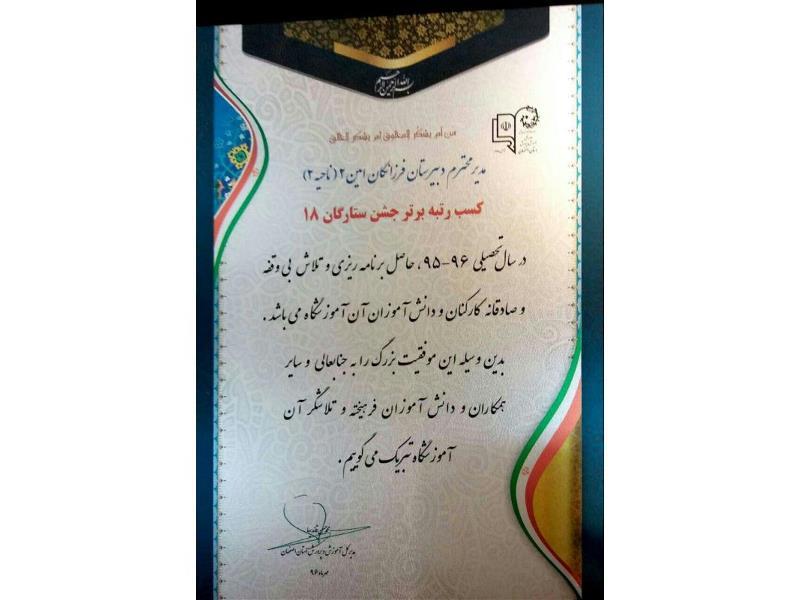 بسم الله الرحمن الرحیم
من لم یشکر المخلوق لم یشکر الخالق
مدیر محترم دبیرستان فرزانگان امین ۲ (ناحیه ۲)
کسب رتبه برتر جشن ستارگان ۱۸
در سال تحصیلی ۹۶-۹۵، حاصل برنامه ریزی و تلاش بی وقفه
و صادقانه کارکنان و دانش آموزان آن آموزشگاه می باشد.
بدین وسیله این موفقیت بزرگ را به جنابعالی و سایر
همکاران و دانش آموزان فرهیخته و تلاشگر آن
آموزشگاه تبریک می گوییم.
مدیر کل آموزش و پرورش استان اصفهان
مهرماه ۹۶